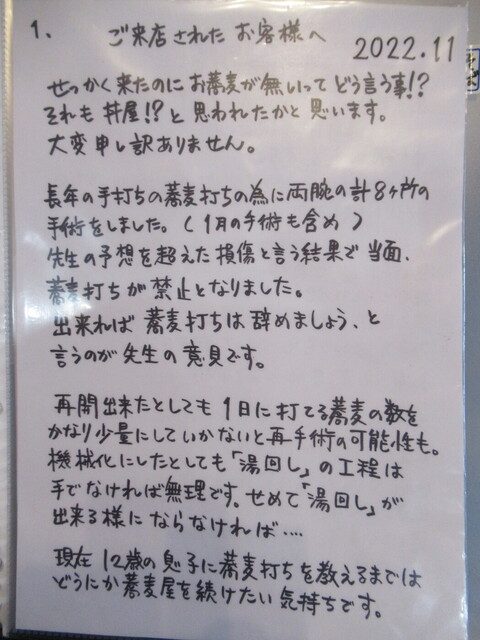 1、 ご来店された お客様へ
2022.11
せっかく来たのに お蕎麦が無いって どう言う事!?
それも 丼屋!? と 思われたかと 思います。
大変申し訳ありません。
長年の手打ちの蕎麦打ちの為に両腕の計8ヶ所の
手術をしました。(1月の手術も含め)
先生の予想を超えた損傷と言う結果で当面、
蕎麦打ちが禁止となりました。
出来れば 蕎麦打ちは 辞めましょう、と
言うのが先生の意見です。
再開出来たとしても 1日に打てる蕎麦の数を
かなり少量にしていかないと再手術の可能性も。
機械化にしたとしても「湯回し」の工程は
手でなければ無理です。せめて「湯回し」が
出来る様に ならなければ‥‥
現在 12歳の息子に蕎麦打ちを教えるまでは
どうにか蕎麦屋を続けたい気持ちです。